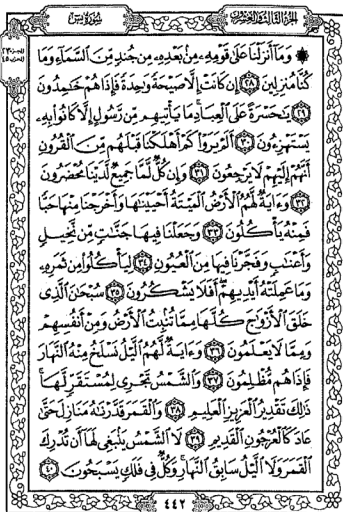 الجزء الثالث والعشرون
سورة يس
۞ وَمَآ أَنزَلْنَا عَلَىٰ قَوْمِهِۦ مِنۢ بَعْدِهِۦ مِن جُندٍ مِّنَ ٱلسَّمَآءِ وَمَا
كُنَّا مُنزِلِينَ ٢٨ إِن كَانَتْ إِلَّا صَيْحَةً وَٰحِدَةً فَإِذَا هُمْ خَٰمِدُونَ
٢٩ يَٰحَسْرَةً عَلَى ٱلْعِبَادِ مَا يَأْتِيهِم مِّن رَّسُولٍ إِلَّا كَانُوا۟ بِهِۦ
يَسْتَهْزِءُونَ ٣٠ أَلَمْ يَرَوْا۟ كَمْ أَهْلَكْنَا قَبْلَهُم مِّنَ ٱلْقُرُونِ
أَنَّهُمْ إِلَيْهِمْ لَا يَرْجِعُونَ ٣١ وَإِن كُلٌّ لَّمَّا جَمِيعٌ لَّدَيْنَا مُحْضَرُونَ
٣٢ وَءَايَةٌ لَّهُمُ ٱلْأَرْضُ ٱلْمَيْتَةُ أَحْيَيْنَٰهَا وَأَخْرَجْنَا مِنْهَا حَبًّا
فَمِنْهُ يَأْكُلُونَ ٣٣ وَجَعَلْنَا فِيهَا جَنَّٰتٍ مِّن نَّخِيلٍ
وَأَعْنَٰبٍ وَفَجَّرْنَا فِيهَا مِنَ ٱلْعُيُونِ ٣٤ لِيَأْكُلُوا۟ مِن ثَمَرِهِۦ
وَمَا عَمِلَتْهُ أَيْدِيهِمْ أَفَلَا يَشْكُرُونَ ٣٥ سُبْحَٰنَ ٱلَّذِى
خَلَقَ ٱلْأَزْوَٰجَ كُلَّهَا مِمَّا تُنۢبِتُ ٱلْأَرْضُ وَمِنْ أَنفُسِهِمْ
وَمِمَّا لَا يَعْلَمُونَ ٣٦ وَءَايَةٌ لَّهُمُ ٱلَّيْلُ نَسْلَخُ مِنْهُ ٱلنَّهَارَ
فَإِذَا هُم مُّظْلِمُونَ ٣٧ وَٱلشَّمْسُ تَجْرِى لِمُسْتَقَرٍّ لَّهَا
ذَٰلِكَ تَقْدِيرُ ٱلْعَزِيزِ ٱلْعَلِيمِ ٣٨ وَٱلْقَمَرَ قَدَّرْنَٰهُ مَنَازِلَ حَتَّىٰ
عَادَ كَٱلْعُرْجُونِ ٱلْقَدِيمِ ٣٩ لَا ٱلشَّمْسُ يَنۢبَغِى لَهَآ أَن تُدْرِكَ
ٱلْقَمَرَ وَلَا ٱلَّيْلُ سَابِقُ ٱلنَّهَارِ وَكُلٌّ فِى فَلَكٍ يَسْبَحُونَ ٤٠
٤٤٢